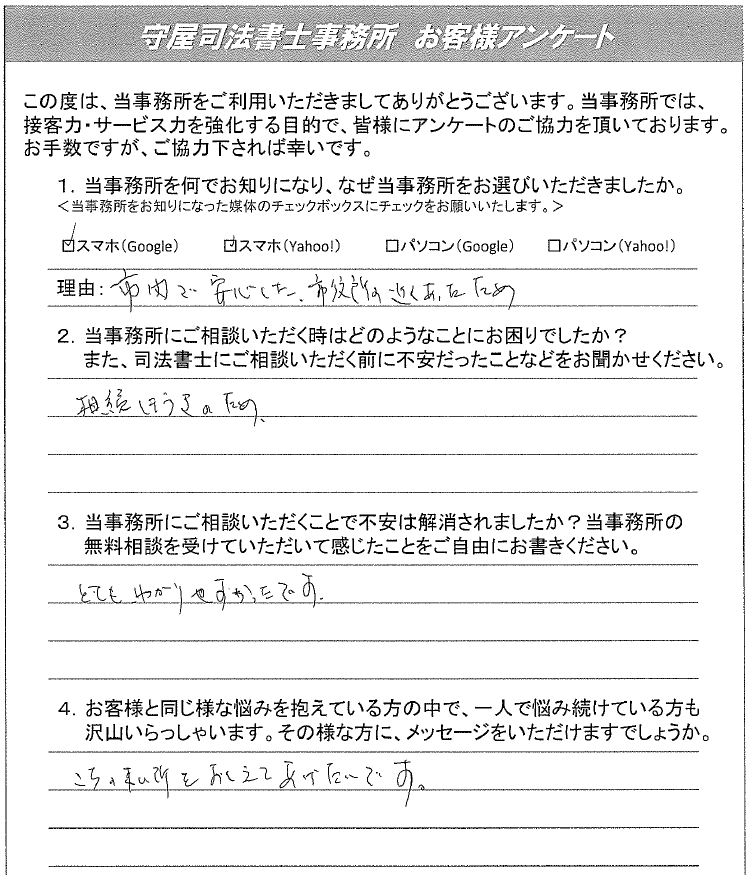 守屋司法書士事務所 お客様アンケート
この度は、当事務所をご利用いただきましてありがとうございます。当事務所では、
接客力・サービス力を強化する目的で、皆様にアンケートのご協力を頂いております。
お手数ですが、ご協力下されば幸いです。
1. 当事務所を何でお知りになり、なぜ当事務所をお選びいただきましたか。
＜当事務所をお知りになった媒体のチェックボックスにチェックをお願いいたします。＞
☑スマホ(Google) ☑スマホ(Yahoo!) □パソコン(Google) □パソコン(Yahoo!)
理由: 市内で安心した、市役所の近くあったため
2. 当事務所にご相談いただく時はどのようなことにお困りでしたか?
また、司法書士にご相談いただく前に不安だったことなどをお聞かせください。
相続ほうきのため、
3. 当事務所にご相談いただくことで不安は解消されましたか?当事務所の
無料相談を受けていただいて感じたことをご自由にお書きください。
とてもわかりやすかったです。
4. お客様と同じ様な悩みを抱えている方の中で、一人で悩み続けている方も
沢山いらっしゃいます。その様な方に、メッセージをいただけますでしょうか。
こちらの を おしえてあげたいです。